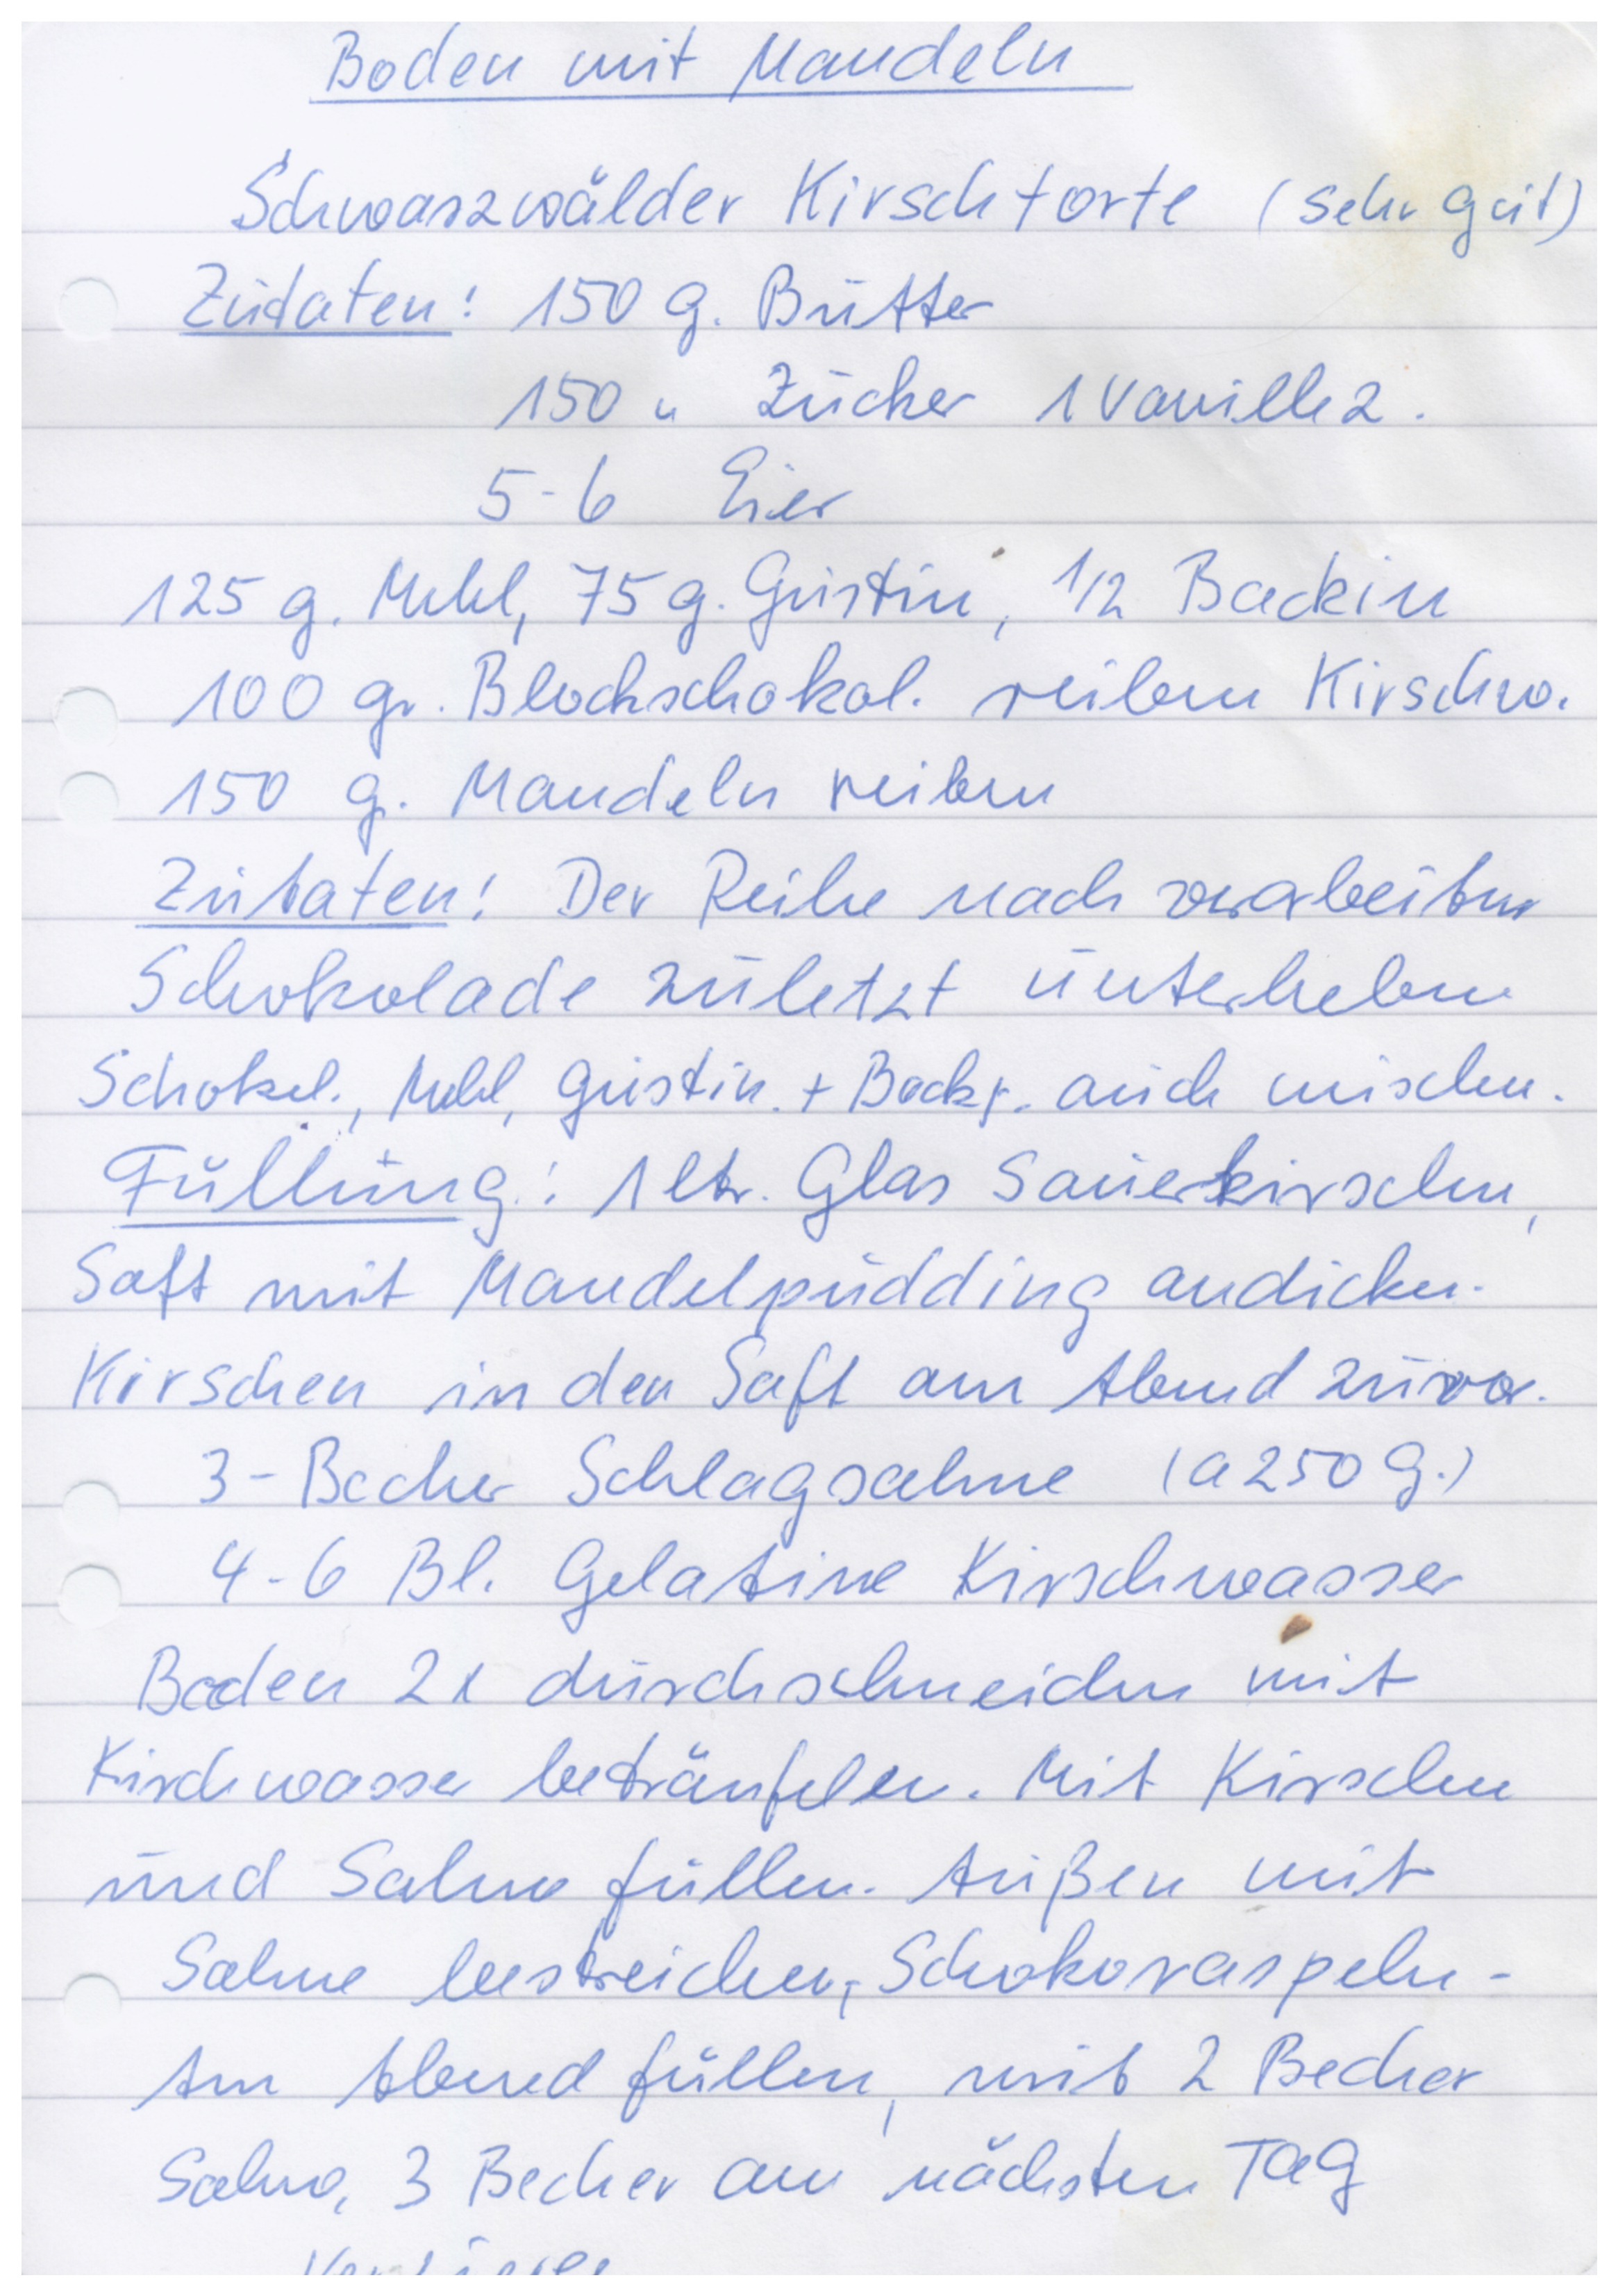 Boden mit Mandeln
Schwarzwälder Kirschtorte (sehr gut)
Zutaten: 150 g. Butter
150 " Zucker 1 Vanillez.
5-6 Eier
125 g. Mehl, 75 g. Gustin, 1/2 Backin
100 gr. Blockschokol. reiben Kirschw.
150 g. Mandeln reiben
Zutaten: Der Reihe nach verarbeiten
Schokolade zuletzt unterheben
Schokol., Mehl, Gustin. + Backp. auch mischen.
Füllung: 1 ltr. Glas Sauerkirschen,
Saft mit Mandelpudding andicken.
Kirschen in den Saft am Abend zuvor.
3 - Becher Schlagsahne (a 250 g.)
4-6 Bl. Gelatine Kirschwasser
Boden 2x durchschneiden mit
Kirschwasser beträufeln. Mit Kirschen
und Sahne füllen. Außen mit
Sahne bestreichen, Schokoraspeln -
Am Abend füllen, mit 2 Becher
Sahne, 3 Becher am nächsten Tag